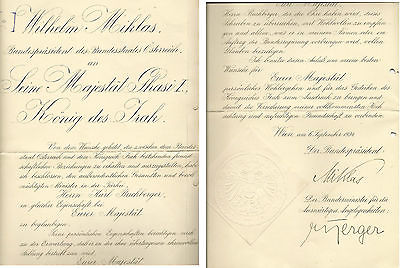 Wilhelm Miklas,
Bundespräsident des Bundesstaates Österreich,
an
Seine Majestät Ghasi I.,
König des Irak.
Von dem Wunsche geleitet, die zwischen dem Bundes-
staat Österreich und dem Königreich Irak bestehenden freund-
schaftlichen Beziehungen zu erhalten und auszugestalten, habe
ich beschlossen, den außerordentlichen Gesandten und bevoll-
mächtigten Minister in der Türkei
Herrn Karl Buchberger,
in gleicher Eigenschaft bei
Eurer Majestät
zu beglaubigen.
Seine persönlichen Eigenschaften berechtigen mich
zu der Erwartung, daß er der ihm übertragenen ehrenvollen
Stellung
Eure Majestät
Eurer Majestät
Herrn Buchberger, der die Ehre haben wird, dieses
Schreiben zu überreichen, mit Wohlwollen zu empfan-
gen und allem, was er in meinem Namen oder im
Auftrag der Bundesregierung vorbringen wird, vollen
Glauben beizulegen.
Ich benütze diesen Anlaß um meine besten
Wünsche für
Eurer Majestät
persönliches Wohlergehen und für das Gedeihen des
Königreiches Irak zum Ausdruck zu bringen und
damit die Versicherung meiner vollkommensten Hoch-
achtung und aufrichtigen Freundschaft zu verbinden.
Wien, am 6. September 1934.
Der Bundespräsident:
Miklas
Der Bundesminister für die
Auswärtigen Angelegenheiten:
Berger